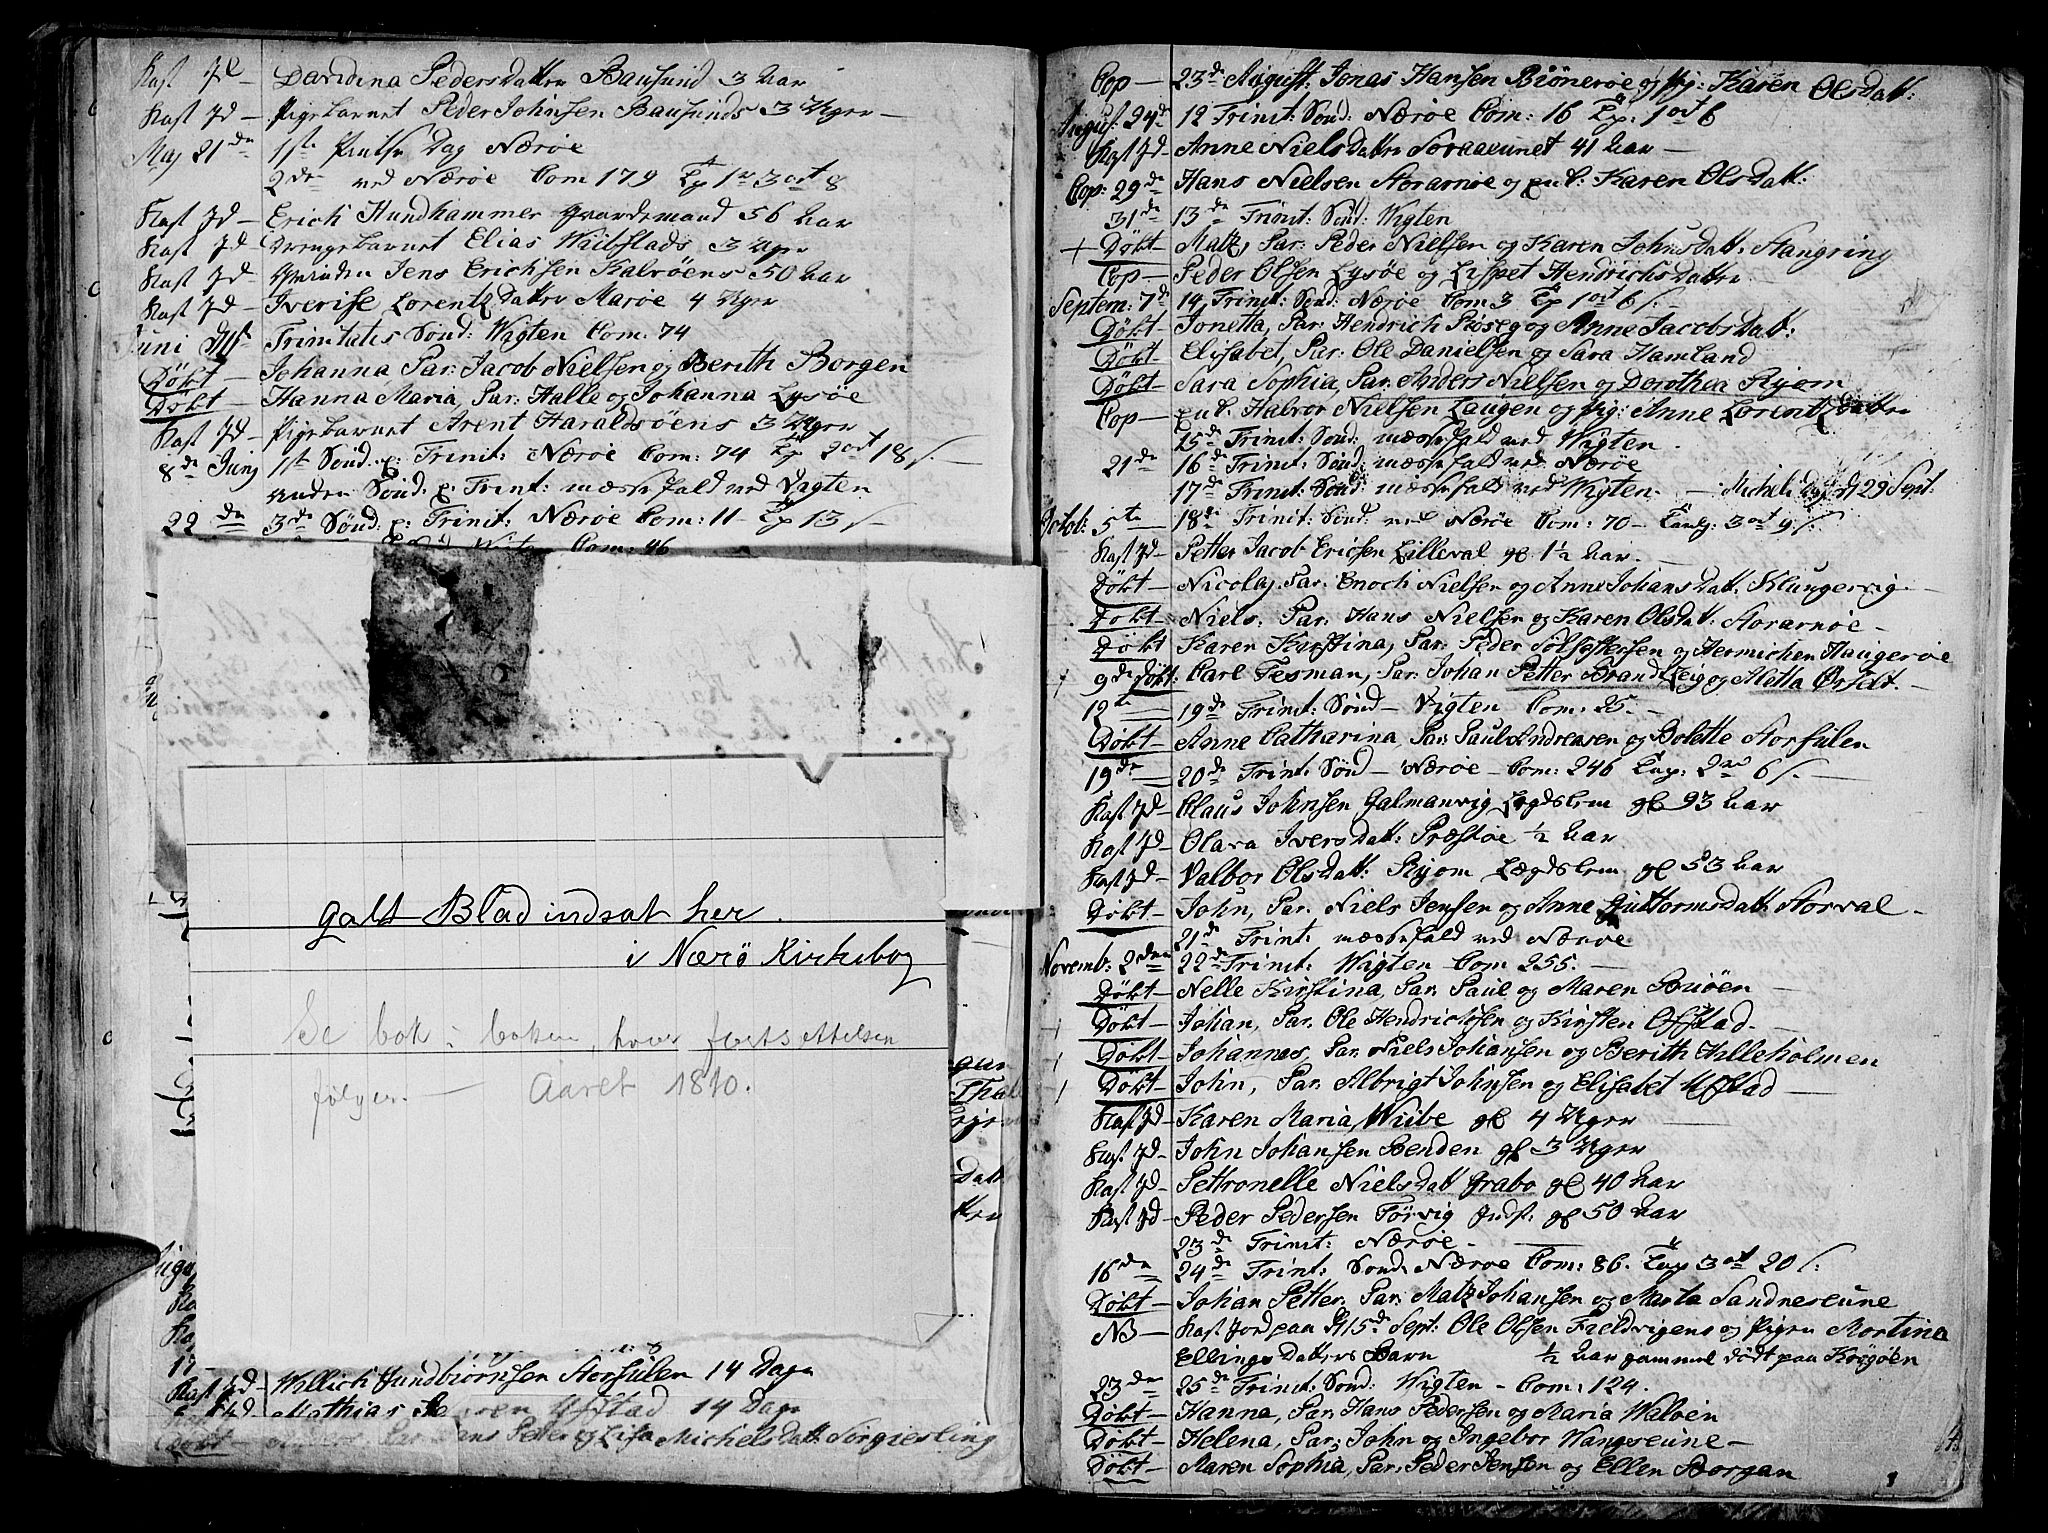 Kast Jd — Davidina Pedersdatter Bausund 3 Aar
Kast Jd — Pigebarnet Peder Johnsen Bausunds 3 Uger —
Maj 21de 1ste Pintse Dag Nærøe
2den ved Nærøe Com 179
Kast Jd — Erich Hundhammer Gaardemand 56 Aar
Kast Jd — Drengebarnet Elias Wiibstads 3 Uger
Kast Jd — Qvinden Jens Erichsen Kalvöens 50 Aar
Kast Jd — Iverise Lorentz Datter Marøe 4 Uger
Juni Trinitatis Sönd: Wigten Com: 74
Døbt — Johanna Par: Jacob Nielsen og Berith Borgen
Døbt — Hanna Maria, Par: Halle og Johanna Lysøe
Kast Jd — Pigebarnet Arent Haraldsöens 3 Uger
8de Junj 1ste Sönd. p: Trinit: Nærøe Com: 74 2 ort 18 s. —
Anden Sönd: p: Trint: messefald ved Vigten
22de 3de Sönd: p: Trinit: Nærøe Com: 11 — 13 s —
Wigten Com: 46
galt Blad indsat her.
i Nærö Kirkebog
Se bak i boken, hvor fortsettelsen
følger. — Aaret 1810.
Kast Jd — Willich Gundbiörnsen Storsülen 14 Dage
Jd — Mathias Ufstad 14 Dage
Døbt — Par: Hans Petter og Lisa Michelsdatt: Sörgiesling
Cop — 23de August: Jonas Hansen Biönerøe og pig: Karen Olsdatt:
August 24de 12 Trinit: Sönd: Nærøe Com: 16 1 ort 6
Kast Jd — Anne Niels datter Soraaeunet 41 Aar —
Cop: 29de Hans Nielsen Storarnøe og Karen Olsdatt:
31de 13de Trinit: Sönd: Wigten
+ Døbt — Matz, Par: Peder Nielsen og Karen Johnsdatt: Stangring
Cop — Peder Olsen Lysøe og Lispet Hendrichsdatter
Septem: 7de 14. Trinit: Sönd: Nærøe Com 3 1 ort 6 s. —
Døbt — Jonetta, Par: Hendrich Roseg og Anne Jacobsdatt:
Døbt — Elisabet, Par: Ole Danielsen og Sara Hamland
Døbt — Sara Sophia, Par: Anders Nielsen og Dorothea Ryom
Cop — Halvor Nielsen Laugen og pig: Anne Lorentzdatter
15de Trinit: Sönd: messefald ved Wigten.
21de 16de Trinit: Sönd: messefald ved Nærøe
17de Trinit: Sönd: messefald ved Wigten. — Micheli dag d 29 Sept:
Octob: 5te 18de Trinit: Sönd: ved Nærøe Com: 70 — 3 ort 9 s. —
Kast Jd — Petter Jacob Ericsen Lilleval gl 1½ Aar. —
Døbt — Nicolaj, Par: Enoch Nielsen og Anne Johansdatt. Klungervig —
Døbt — Niels. Par. Hans Nielsen og Karen Olsdatt: Storarnøe —
Døbt Karen Kirstina, Par: Peder Sölfestersen og Hermichen Haugerøe
9de Døbt: Carl Tesman, Par: Johan Petter Brandtzeig og Aletta Ørsldt. —
12te — 19de Trinit: Sönd — Vigten Com: 25. —
Døbt — Anne Catharina, Par: Paul Andreasen og Bolette Storsülen
19de — 20de Trinit: Sönd — Nærøe — Com: 246 6 s. —
Kast Jd — Claus Johnsen Galmanvig Legdslem gl 93 Aar
Kast Jd — Olava Iversdatt: Præstøe ½ Aar
Kast Jd — Valbor Olsdatt: Ryom Lægdslem gl 53 Aar
Døbt — John, Par. Niels Jensen og Anne Guttormsdatt Storval —
21de Trinit: messefald ved Nærøe
Novemb: 2den 22de Trinit: Wigten Com 255. —
Døbt — Nelle Kirstina, Par: Paul og Maren Buöen —
Døbt — Johan, Par. Ole Hendrichsen og Kirsten Offstad. —
Døbt — Johannes, Par Niels Johansen og Berith Hilleholmen
Døbt — John, Par. Albrigt Johnsen og Elisabet Ufstad —
Kast Jd — Karen Maria Wiibe gl 4 Uger —
Kast Jd — John Johansen Benden gl 3 Uger
Kast Jd — Petronelle Nielsdatt Grabo gl 40 Aar
Kast Jd — Peder Pedersen Törvig Inds: gl 50 Aar
23de Trinit: Nærøe —
16de 24de Trinit: Sönd: Nærøe Com: 86. 3 ort 20 s:
Døbt — Johan Petter. Par: Matz Johansen og Marta Sandnereune
NB — Kast Jord paa d 15de Sept: Ole Olsen Fieldvigens og Pigen Mortina
Ellings Datters Barn ½ Aar gammel dödt paa Krøgöen
23de 25de Trinit: Sönd: Wigten — Com: 124.
Døbt — Hanna, Par: Hans Pedersen og Maria Walöen
Døbt — Helena, Par: John og Ingebor Wangseune —
Døbt — Maren Sophia, Par: Peder Jensen og Ellen Borgan